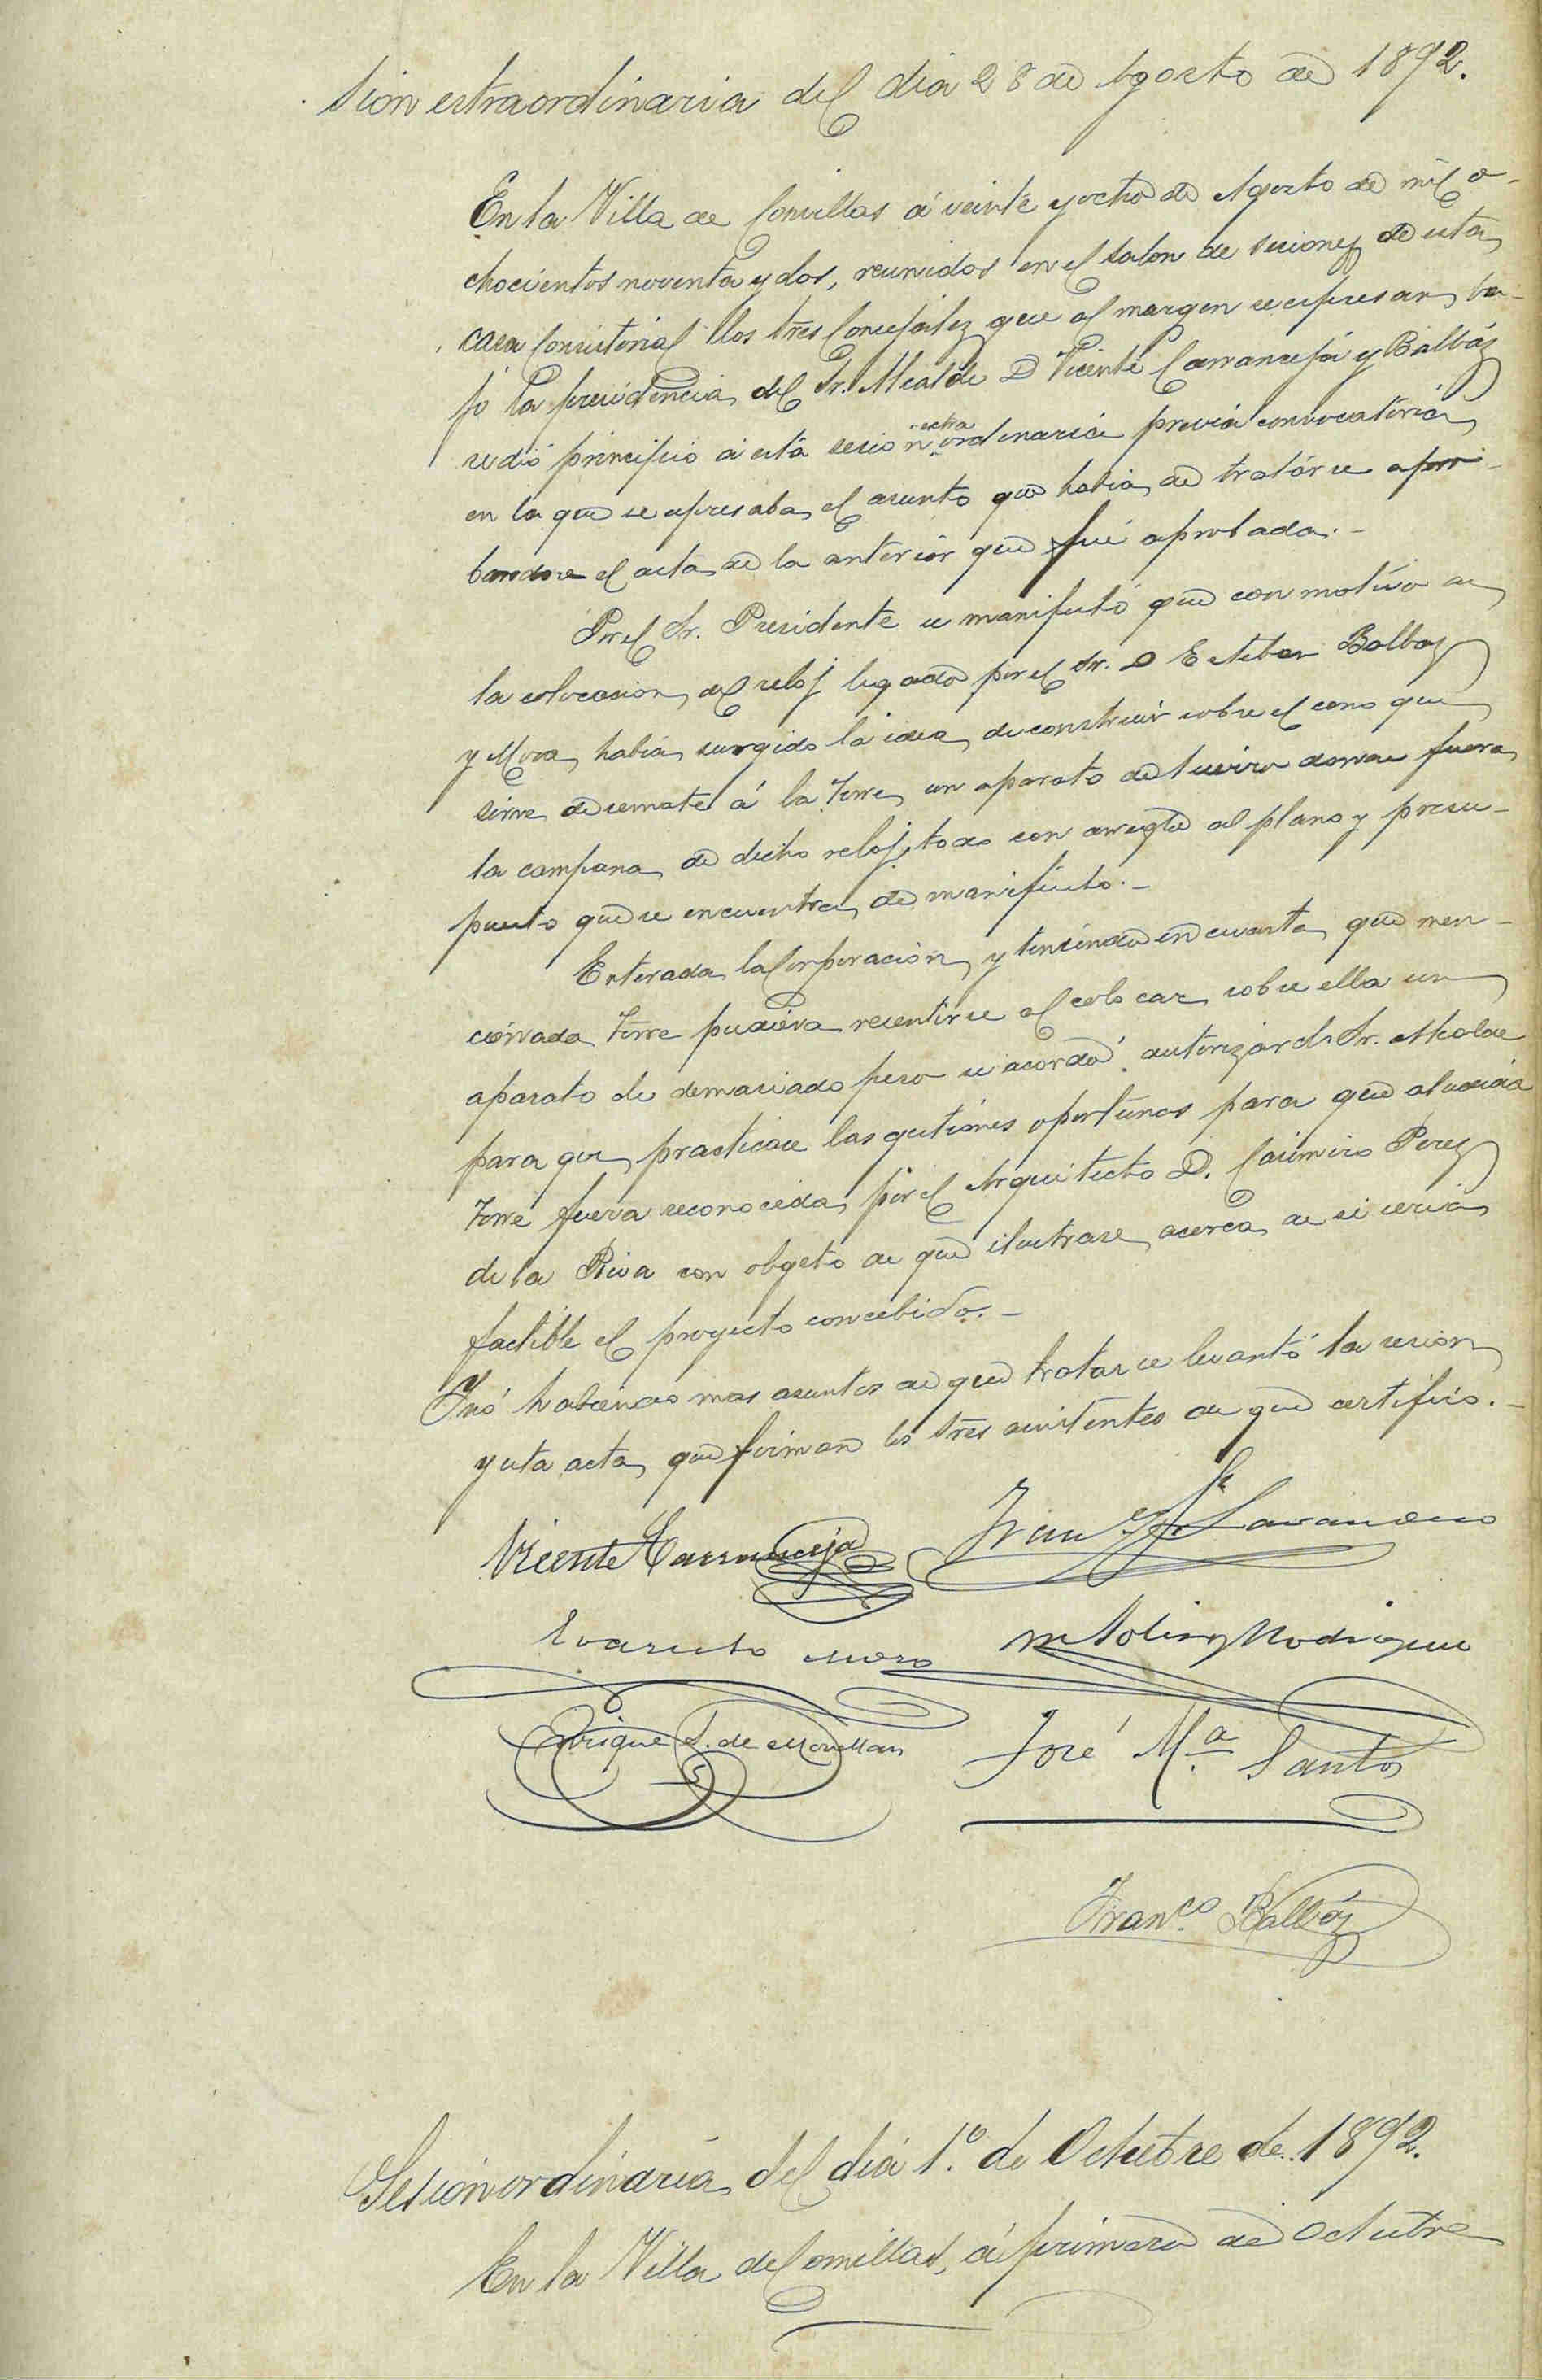 sion extraordinaria del dia 28 de Agosto de 1892.
En la Villa de Comillas á veinte y ocho de Agosto de mil o-
chocientos noventa y dos, reunidos en el salon de sesiones de esta
casa Consistorial los tres Concejales que al margen se espresan ba-
jo la presidencia del Sr. Alcalde D Vicente Carranceja y Balbás
se dió principio á esta sesion extraordinaria previa convocatoria
en la que se espresaba el asunto que habia de tratarse apro-
bandose el acta de la anterior que fué aprobada.-
Por el Sr. Presidente se manifestó que con motivo de
la colocacion del reloj legado por el Sr. D Esteban Balbas
y Mora, habia surgido la idea de construir sobre el cono que
sirve de remate á la Torre, un aparato de hierro donde fuera
la campana de dicho reloj, todo con arreglo al plano y presu-
puesto que se encuentra de manifiesto.-
Enterada la Corporacion, y teniendo en cuenta que men-
cionada Torre pudiera resentirse al colocar sobre ella un
aparato de demasiado peso se acordó autorizar al Sr. Alcalde
para que practicase las gestiones oportunas para que aludida
Torre fuera reconocida por el Arquitecto D. Casimiro Perez
de la Riva con objeto de que ilustrase acerca de si seria
factible el proyecto concebido.-
Y nó habiendo mas asuntos de que tratar se levantó la sesion
y esta acta que firman los tres asistentes de que certifico.-
Vicente Carranceja
Fran Lavandero
Evaristo Mora
M Solis y Rodriguez
Enrique S. de Movellan
José Mª Santos
Franco Balbás
Sesion ordinaria del dia 1º. de Octubre de 1892.
En la Villa de Comillas, á primero de Octubre